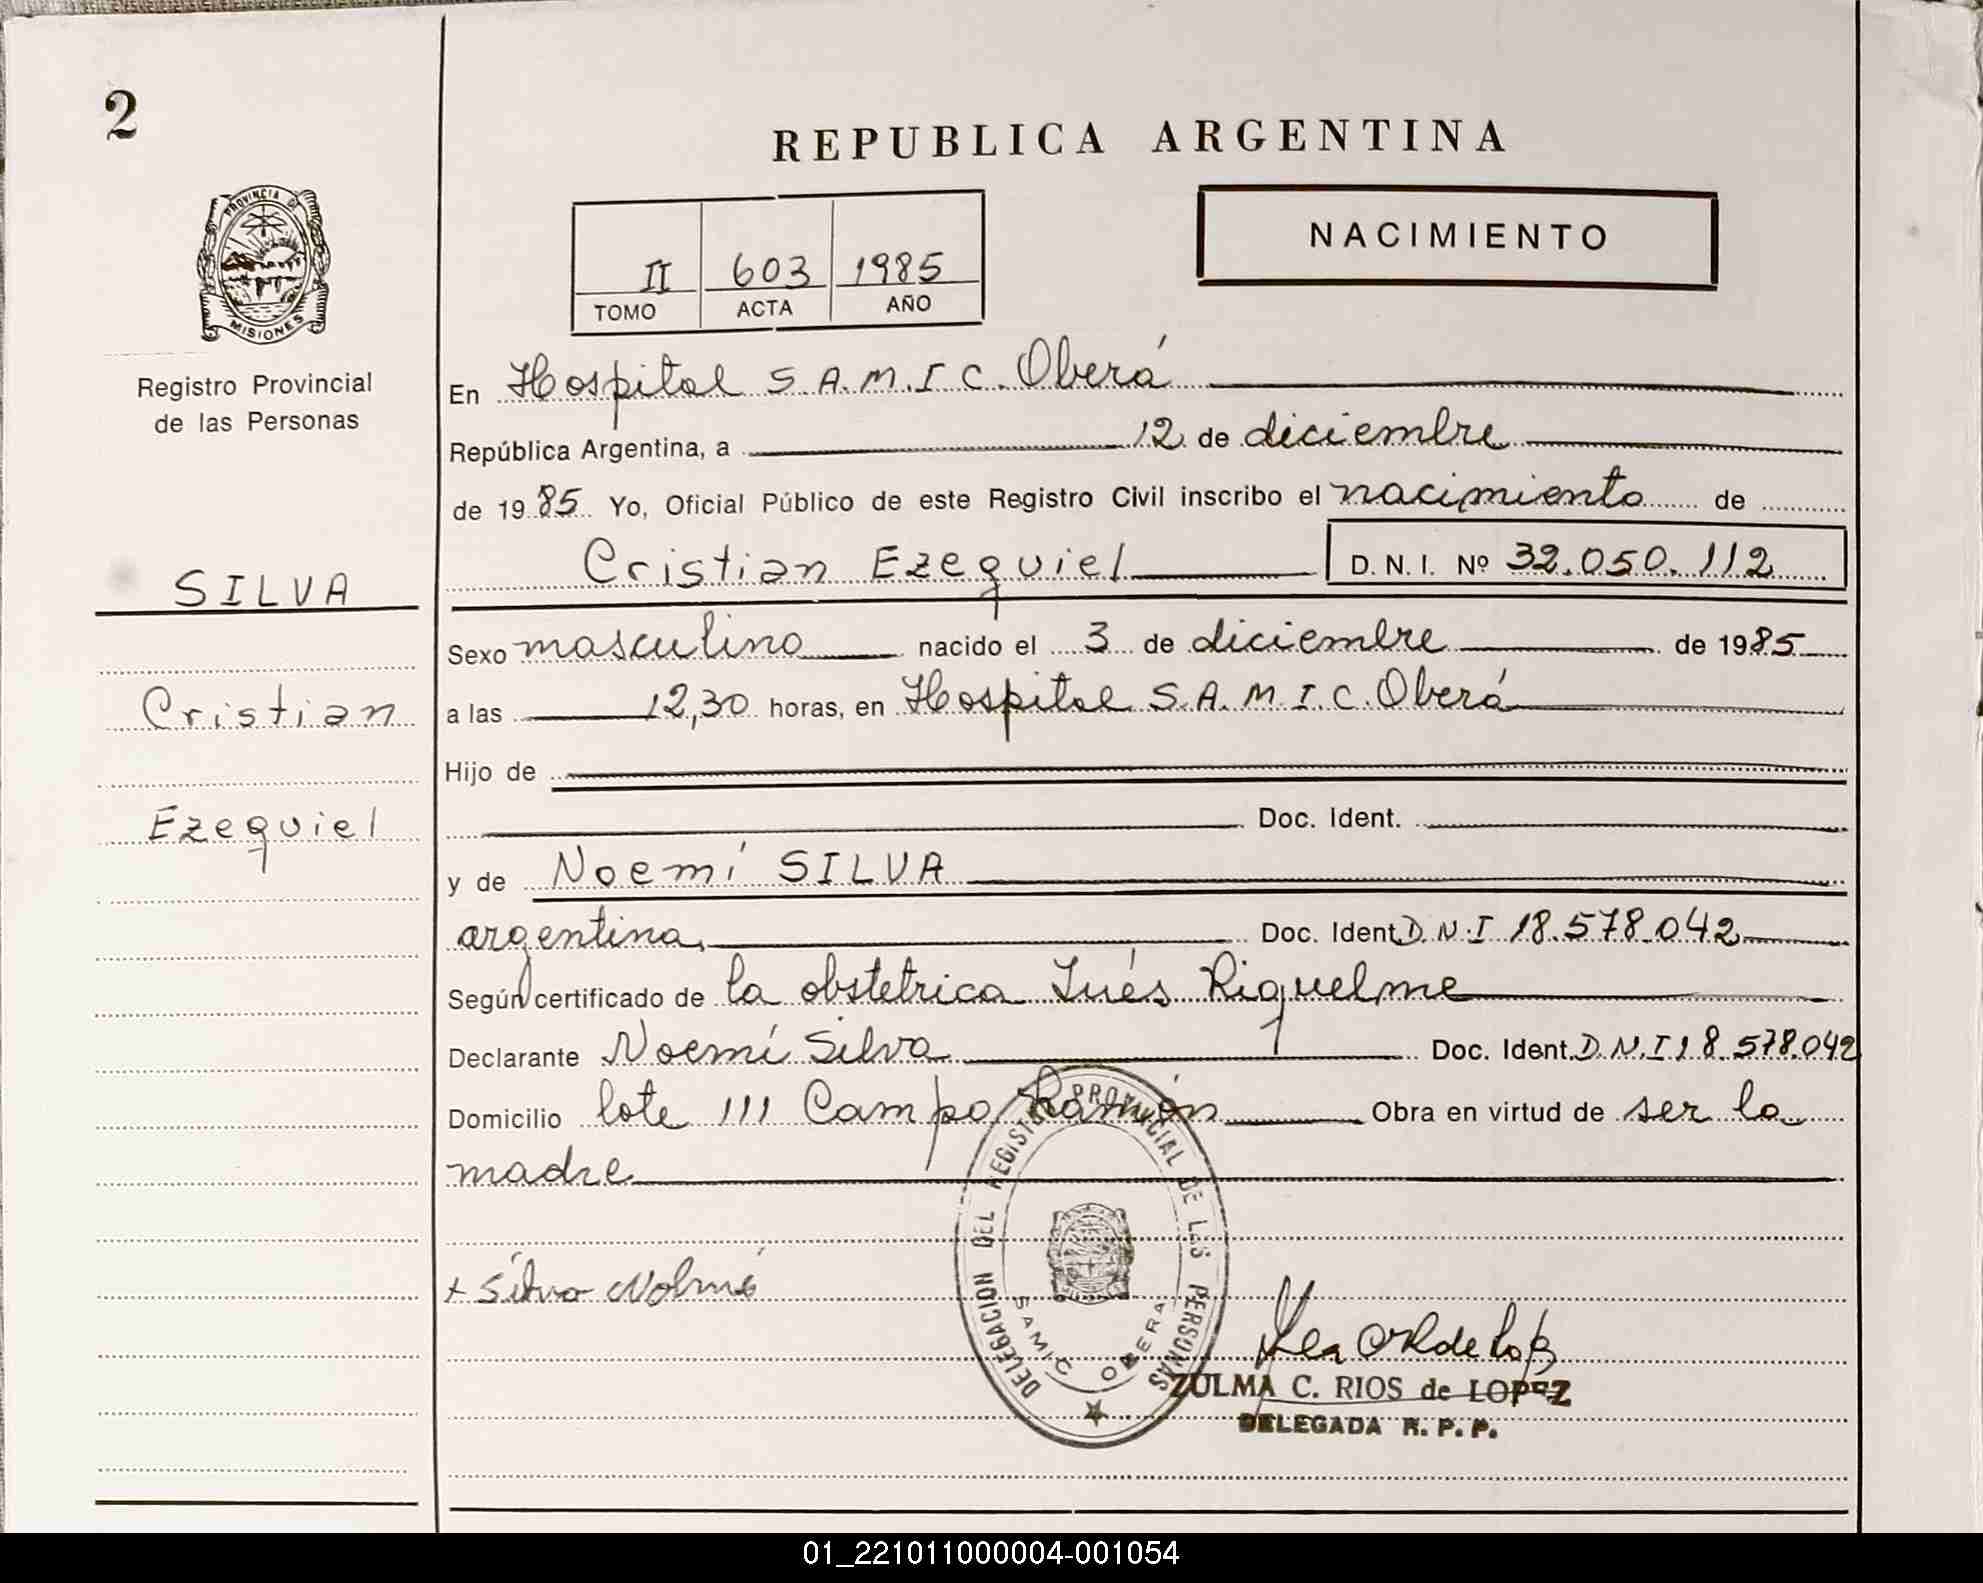 2
REPUBLICA ARGENTINA
PROVINCIA DE
MISIONES
Registro Provincial
de las Personas
II 603 1985
TOMO ACTA AÑO
NACIMIENTO
SILVA
Cristian
Ezequiel
En Hospital S.A.M.I.C. Oberá
República Argentina, a 12 de diciembre
de 1985 Yo, Oficial Público de este Registro Civil inscribo el nacimiento de
Cristian Ezequiel D. N. I. Nº 32.050.112
Sexo masculino nacido el 3 de diciembre de 1985
a las 12,30 horas, en Hospital S.A.M.I.C. Oberá
Hijo de
Doc. Ident.
y de Noemí SILVA
argentina, Doc. Ident. D.N.I 18.578.042
Según certificado de la obstetrica Inés Riquelme
Declarante Noemí Silva Doc. Ident. D.N.I 18.578.042
Domicilio lote 111 Campo Ramón Obra en virtud de ser la
madre
DELEGACION DEL REGISTRO PROVINCIAL DE LAS PERSONAS
SAMIC OBERA
+ Silva
ZULMA C. RIOS de LOPEZ
DELEGADA R. P. P.
01_221011000004-001054